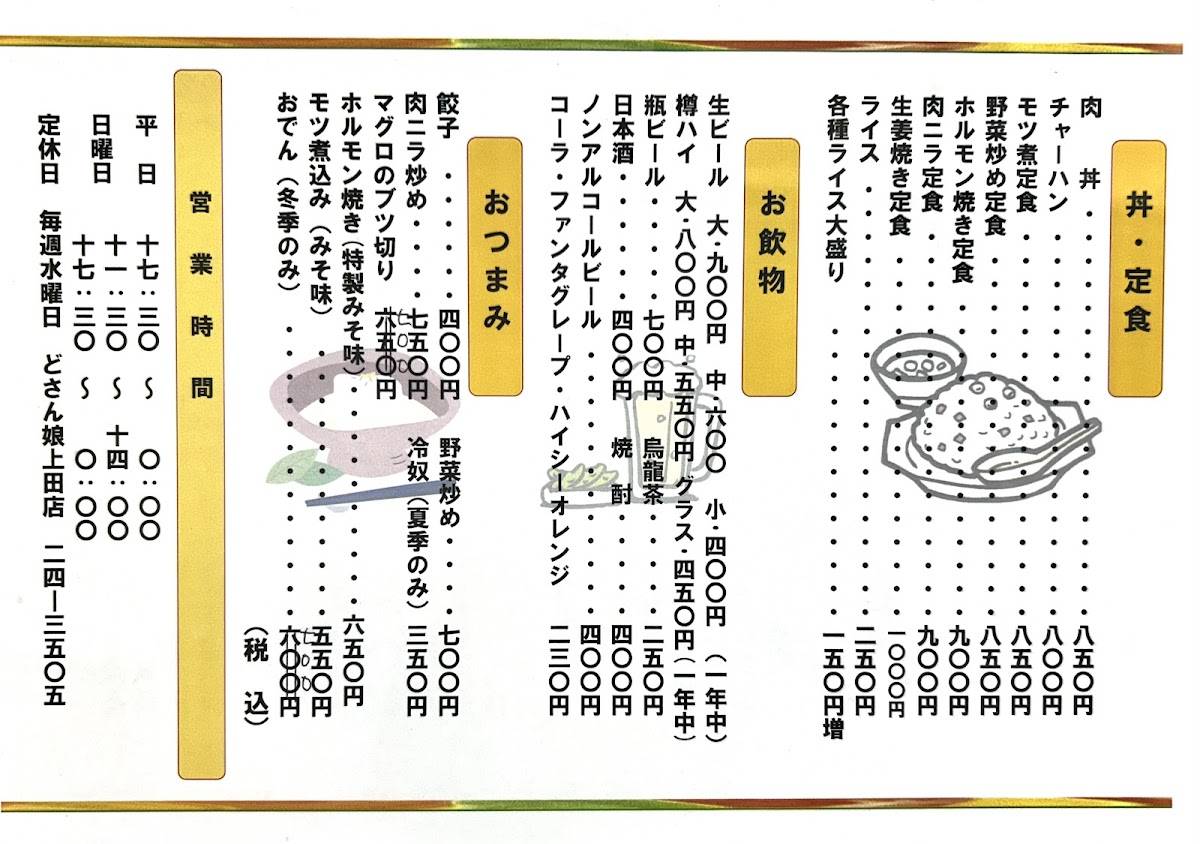 丼・定食
肉　丼・・・・・・・・・・・・八五〇円
チャーハン・・・・・・・・・・・・八〇〇円
モツ煮定食・・・・・・・・・・・・八五〇円
野菜炒め定食・・・・・・・・・・・・八五〇円
ホルモン焼き定食・・・・・・・・・・・九〇〇円
肉ニラ定食・・・・・・・・・・・・九〇〇円
生姜焼き定食・・・・・・・・・・・・一〇〇〇円
ライス・・・・・・・・・・・・二五〇円
各種ライス大盛り・・・・・・・・・・・一五〇円増
お飲物
生ビール　大・九〇〇円　中・六〇〇　小・四〇〇円　（一年中）
樽ハイ　大・八〇〇円　中・五五〇円　グラス・四五〇円（一年中）
瓶ビール・・・・・七〇〇円　烏龍茶・・・・二五〇円
日本酒・・・・・四〇〇円　焼　酎・・・・四〇〇円
ノンアルコールビール・・・・・・・・・・四〇〇円
コーラ・ファンタグレープ・ハイシーオレンジ　二三〇円
おつまみ
餃子・・・・・四〇〇円　野菜炒め・・・・七〇〇円
肉ニラ炒め・・・・七五〇円　冷奴（夏季のみ）三五〇円
マグロのブツ切り　六五〇円　七〇〇
ホルモン焼き（特製みそ味）・・・・・・・・六五〇円
モツ煮込み（みそ味）・・・・・・・・・・五五〇円
おでん（冬季のみ）・・・・・・・・・・六〇〇円　七〇〇
（税　込）
営業時間
平　日　十七：三〇　～　〇：〇〇
日曜日　十一：三〇　～　十四：〇〇
十七：三〇　～　〇：〇〇
定休日　毎週水曜日　どさん娘上田店　二四ー三五〇五